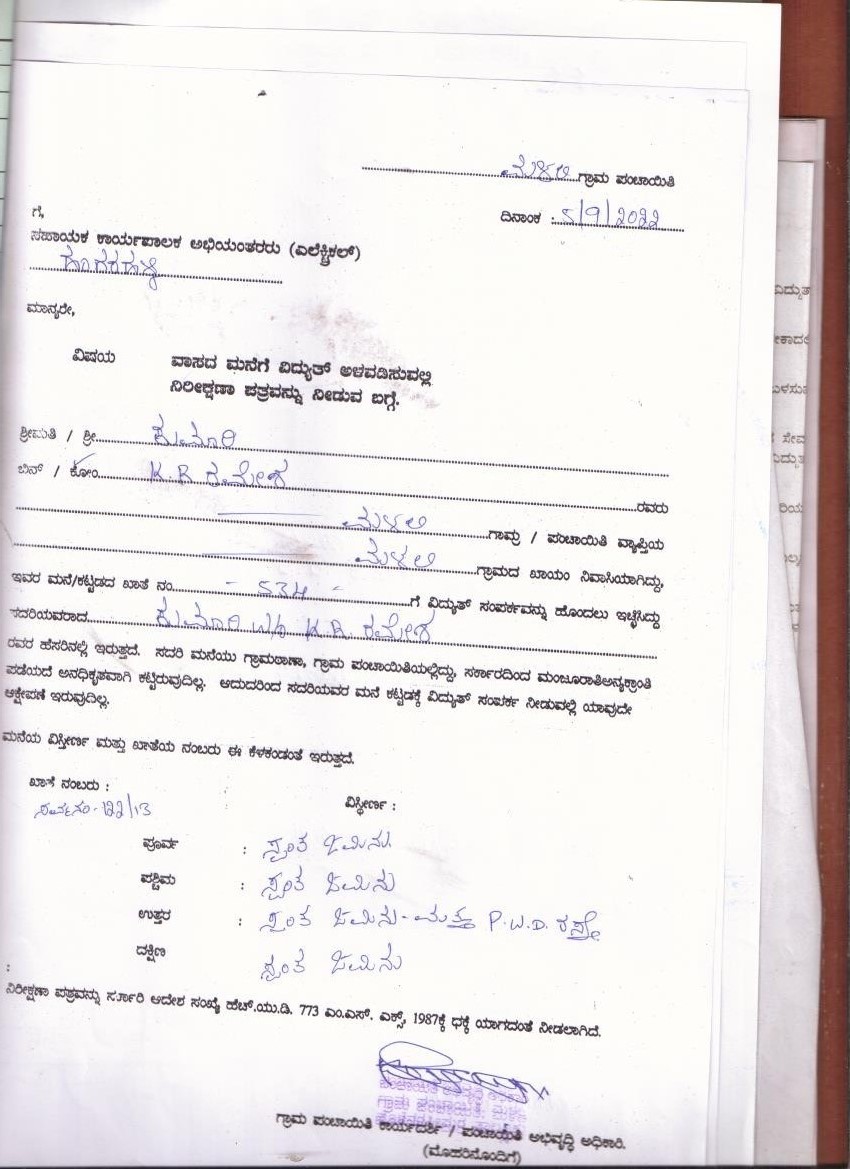 ಮಳಲಿ ಗ್ರಾಮ ಪಂಚಾಯಿತಿ
ಗೆ,
ದಿನಾಂಕ : 5/9/2022
ಸಹಾಯಕ ಕಾರ್ಯಪಾಲಕ ಅಭಿಯಂತರರು (ಎಲೆಕ್ಟ್ರಿಕಲ್)
ಮಾನ್ಯರೇ,
ವಿಷಯ ವಾಸದ ಮನೆಗೆ ವಿದ್ಯುತ್ ಅಳವಡಿಸುವಲ್ಲಿ
ನಿರೀಕ್ಷಣಾ ಪತ್ರವನ್ನು ನೀಡುವ ಬಗ್ಗೆ.
ಶ್ರೀಮತಿ / ಶ್ರೀ ಕುಮಾರಿ
ಬಿನ್ / ಕೋಂ K.R ರಮೇಶ ರವರು
ಮಳಲಿ ಗಾಮ್ರ / ಪಂಚಾಯಿತಿ ವ್ಯಾಪ್ತಿಯ
ಮಳಲಿ ಗ್ರಾಮದ ಖಾಯಂ ನಿವಾಸಿಯಾಗಿದ್ದು,
ಇವರ ಮನೆ/ಕಟ್ಟಡದ ಖಾತೆ ನಂ. - 534 - ಗೆ ವಿದ್ಯುತ್ ಸಂಪರ್ಕವನ್ನು ಹೊಂದಲು ಇಚ್ಛಿಸಿದ್ದು
ಸದರಿಯವರಾದ ಕುಮಾರಿ W/o K.R. ರಮೇಶ
ರವರ ಹೆಸರಿನಲ್ಲಿ ಇರುತ್ತದೆ. ಸದರಿ ಮನೆಯು ಗ್ರಾಮಠಾಣಾ, ಗ್ರಾಮ ಪಂಚಾಯಿತಿಯಲ್ಲಿದ್ದು, ಸರ್ಕಾರದಿಂದ ಮಂಜೂರಾತಿಅನ್ಯಕ್ರಾಂತಿ
ಪಡೆಯದೆ ಅನಧಿಕೃತವಾಗಿ ಕಟ್ಟಿರುವುದಿಲ್ಲ. ಆದುದರಿಂದ ಸದರಿಯವರ ಮನೆ ಕಟ್ಟಡಕ್ಕೆ ವಿದ್ಯುತ್ ಸಂಪರ್ಕ ನೀಡುವಲ್ಲಿ ಯಾವುದೇ
ಆಕ್ಷೇಪಣೆ ಇರುವುದಿಲ್ಲ.
ಮನೆಯ ವಿಸ್ತೀರ್ಣ ಮತ್ತು ಖಾತೆಯ ನಂಬರು ಈ ಕೆಳಕಂಡಂತೆ ಇರುತ್ತದೆ.
ಖಾತೆ ನಂಬರು : ವಿಸ್ತೀರ್ಣ :
ಸರ್ವೆನಂ-122/13
ಪೂರ್ವ : ಸ್ವಂತ ಜಮೀನು
ಪಶ್ಚಿಮ : ಸ್ವಂತ ಜಮೀನು
ಉತ್ತರ : ಸ್ವಂತ ಜಮೀನು-ಮತ್ತು P.W.D. ರಸ್ತೆ
ದಕ್ಷಿಣ ಸ್ವಂತ ಜಮೀನು
:
ನಿರೀಕ್ಷಣಾ ಪತ್ರವನ್ನು ಸರ್ಕಾರಿ ಆದೇಶ ಸಂಖ್ಯೆ ಹೆಚ್.ಯು.ಡಿ. 773 ಎಂ.ಎಸ್. ಎಕ್ಸ್, 1987ಕ್ಕೆ ಧಕ್ಕೆ ಯಾಗದಂತೆ ನೀಡಲಾಗಿದೆ.
ಗ್ರಾಮ ಪಂಚಾಯಿತಿ ಕಾರ್ಯದರ್ಶಿ / ಪಂಚಾಯಿತಿ ಅಭಿವೃದ್ಧಿ ಅಧಿಕಾರಿ.
(ಮೊಹರಿನೊಂದಿಗೆ)